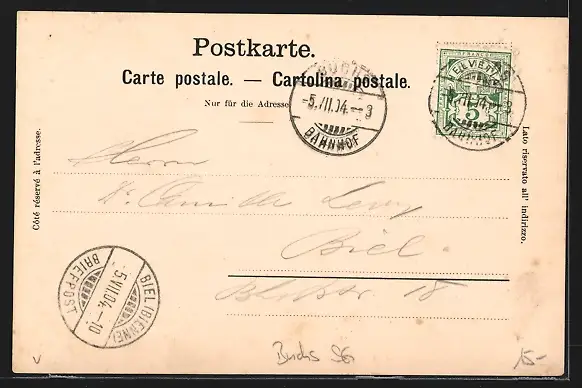 Postkarte.
Carte postale. — Cartolina postale.
Nur für die Adresse
Côté réservé à l'adresse.
Lato riservato all' indirizzo.
-5.VII.04.--3
BAHNHOF
HELVETIA
5
BAHNHOF
Herrn
Levy
Biel.
18
BIEL (BIENNE)
-5.VII.04.-10
BRIEFPOST
Buchs SG
15-